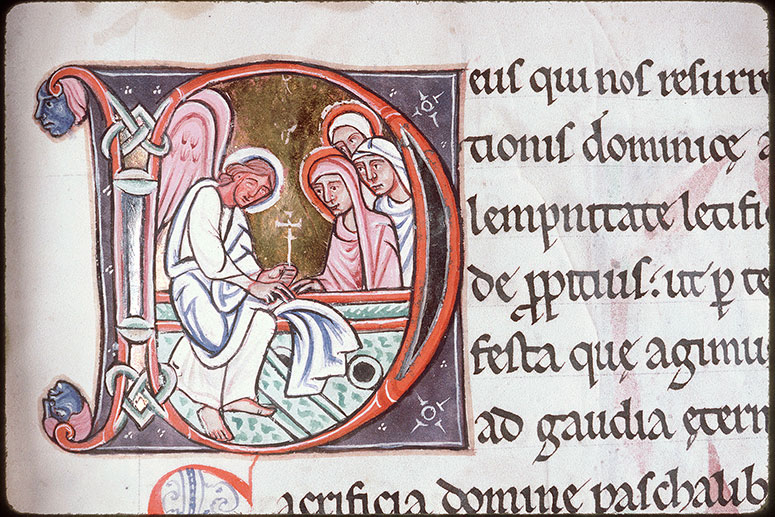 Deus qui nos resurre
tionis dominicę a
lempnitate letifi
de ꝓpitius: ut ꝑ te
festa quę agimu
ad gaudia ętern
Sacrificia domine paschalib